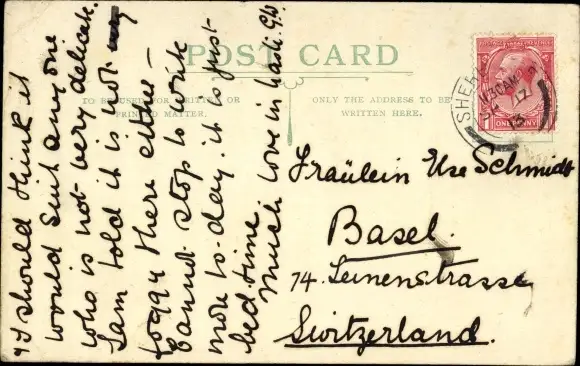 POST CARD
TO BE USED FOR WRITING OR
PRINTED MATTER.
ONLY THE ADDRESS TO BE
WRITTEN HERE.
POSTAGE & REVENUE
ONE PENNY
SHER
11 30 AM
17
13
I should think it
would suit anyone
who is not very delicate.
I am told it is not
foggy there either -
Cannot stop to write
more to-day, it is just
bed time
Much love in haste
Fräulein Ilse Schmidt
Basel.
74. Leinenstrasse
Switzerland.